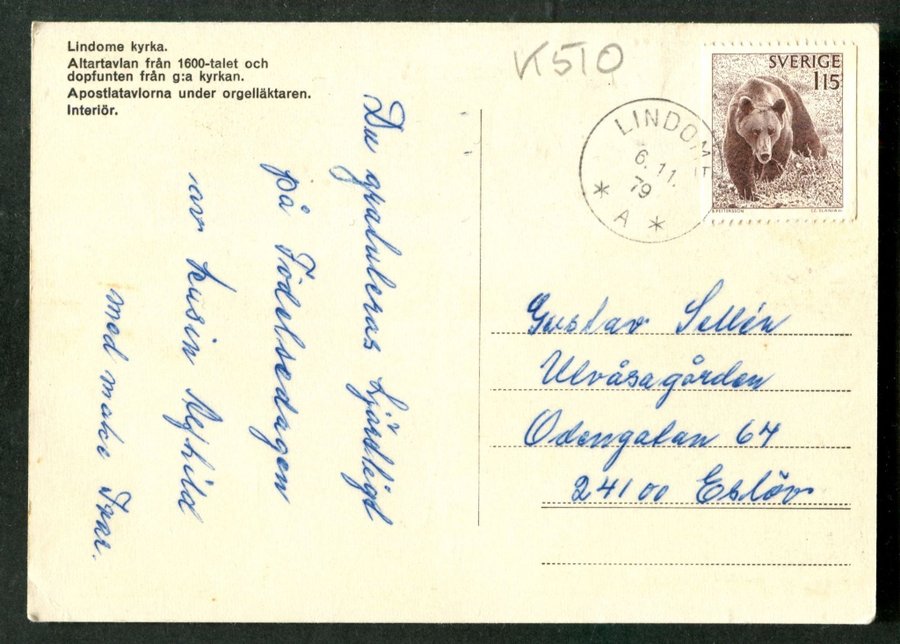 Lindome kyrka.
Altartavlan från 1600-talet och
dopfunten från g:a kyrkan.
Apostlatavlorna under orgelläktaren.
Interiör.
Du gratuleras hjärtligt
på Födelsedagen
av kusin
med make Ivar.
K510
LINDOME
6.11.
79
* A *
SVERIGE
115
Gustav Sellén
Ulvåsagården
Odengatan 64
24100 Eslöv